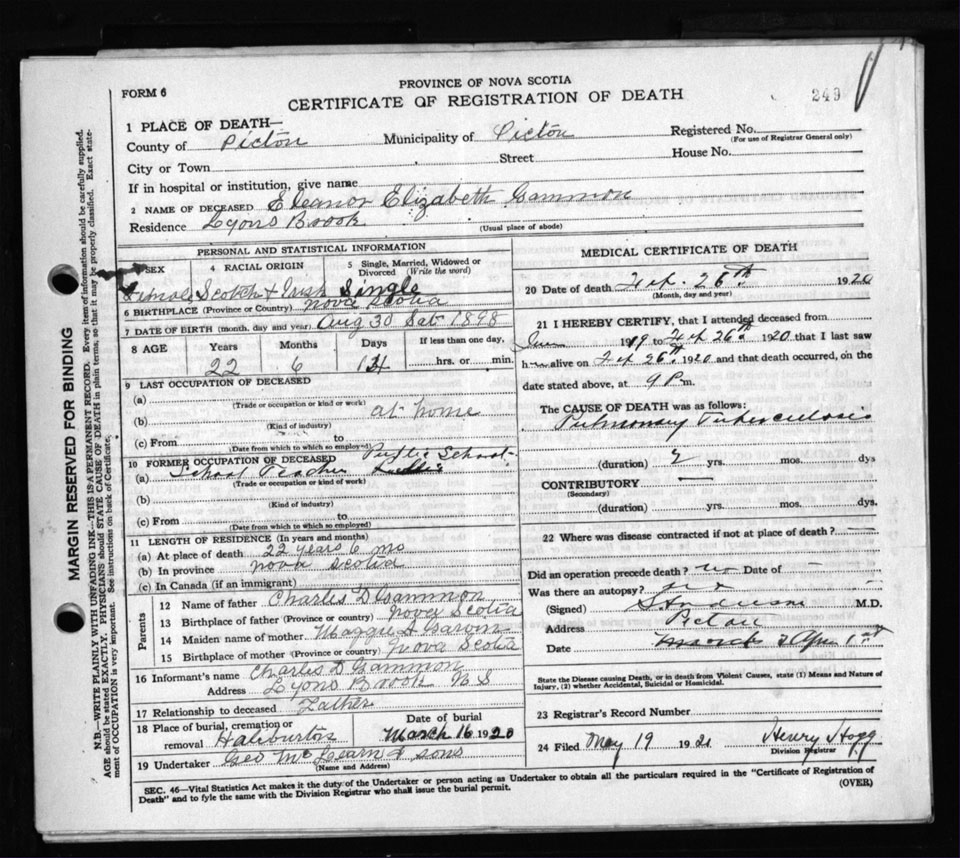 PROVINCE OF NOVA SCOTIA
FORM 6
CERTIFICATE OF REGISTRATION OF DEATH
249
1 PLACE OF DEATH—
County of Pictou Municipality of Pictou Registered No.
(For use of Registrar General only)
City or Town Street House No.
If in hospital or institution, give name
2 NAME OF DECEASED Eleanor Elizabeth Gammon
Residence Lyons Brook (Usual place of abode)
PERSONAL AND STATISTICAL INFORMATION
SEX 4 RACIAL ORIGIN 5 Single, Married, Widowed or Divorced (Write the word)
Female Scotch & Irish Single
6 BIRTHPLACE (Province or Country) Nova Scotia
7 DATE OF BIRTH (month, day and year) Aug 30 Sat 1898
8 AGE Years Months Days If less than one day,
22 6 hrs. or min.
9 LAST OCCUPATION OF DECEASED
(a)
(Trade or occupation or kind or work)
(b) at home
(Kind of industry)
(c) From to
(Date from which to which so employed)
10 FORMER OCCUPATION OF DECEASED Public School
(a) School Teacher
(Trade or occupation or kind of work)
(b)
(Kind of industry)
(c) From to
(Date from which to which so employed)
11 LENGTH OF RESIDENCE (In years and months)
(a) At place of death 22 years 6 mo
(b) In province Nova Scotia
(c) In Canada (if an immigrant)
Parents
12 Name of father Charles D Gammon
13 Birthplace of father (Province or country) Nova Scotia
14 Maiden name of mother Garvin
15 Birthplace of mother (Province or country) Nova Scotia
16 Informant's name Charles D Gammon
Address Lyons Brook N S
17 Relationship to deceased Father
18 Place of burial, cremation or removal Haliburton
Date of burial March 16 1920
19 Undertaker Geo McLearn & sons
(Name and Address)
MEDICAL CERTIFICATE OF DEATH
20 Date of death 26th 1920
(Month, day and year)
21 I HEREBY CERTIFY, that I attended deceased from
1919 to 26th 1920 that I last saw
h alive on 26th 1920 and that death occurred, on the
date stated above, at 9 P m.
The CAUSE OF DEATH was as follows:
Pulmonary Tuberculosis
(duration) 2 yrs. mos. dys
CONTRIBUTORY —
(Secondary)
(duration) yrs. mos. dys.
22 Where was disease contracted if not at place of death? —
Did an operation precede death? no Date of —
Was there an autopsy? no
(Signed) M.D.
Address Pictou
Date 1st
State the Disease causing Death, or in death from Violent Causes, state (1) Means and Nature of Injury, (2) whether Accidental, Suicidal or Homicidal.
23 Registrar's Record Number
24 Filed May 19 1921 Henry Hogg
Division Registrar
SEC. 46—Vital Statistics Act makes it the duty of the Undertaker or person acting as Undertaker to obtain all the particulars required in the "Certificate of Registration of
Death" and to fyle the same with the Division Registrar who shall issue the burial permit. (OVER)
MARGIN RESERVED FOR BINDING
N.B.—WRITE PLAINLY WITH UNFADING INK—THIS IS A PERMANENT RECORD. Every item of information should be carefully supplied.
AGE should be stated EXACTLY. PHYSICIANS should STATE CAUSE OF DEATH in plain terms, so that it may be properly classified. Exact state-
ment of OCCUPATION is very important. See instructions on back of Certificate.